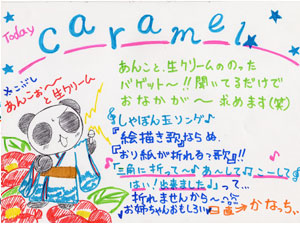 Today
caramel
あんこと、生クリームののった
バゲット〜!!聞いてるだけで
おなかが〜求めます(笑)
こぶし
あんこぉ〜〜
と生クリーム
しゃぼん玉リング♪
『絵描き歌』ならぬ、
『おり紙が折れるぅ歌』!!
「三角に折って〜♪あ〜して♫こーして
はい!出来ました♩」って…
折れませんから〜
お姉ちゃんおもしろい
かなっち